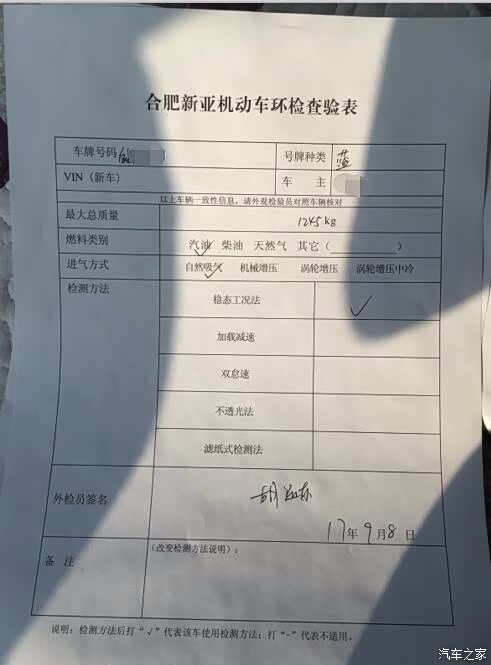 合肥新亚机动车环检查验表
车牌号码 号牌种类 蓝
VIN（新车） 车 主
以上车辆一致性信息，请外观检验员对照车辆核对
最大总质量 1245kg
燃料类别 汽油 柴油 天然气 其它（ ）
进气方式 自然吸气 机械增压 涡轮增压 涡轮增压中冷
检测方法 稳态工况法 ✓
加载减速
双怠速
不透光法
滤纸式检测法
外检员签名
17年9月8日
备 注 （改变检测方法说明）：
说明：检测方法后打“√”代表该车使用检测方法；打“-”代表不适用。
汽车之家